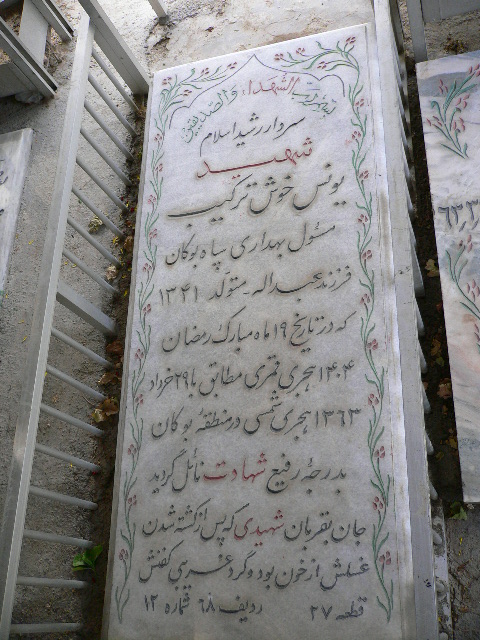 بسم رب الشهداء والصدیقین
سردار رشید اسلام
شهید
یونس خوش ترکیب
مسئول بهداری سپاه بوکان
فرزند عبداله ـ متولد ۱۳۴۱
که در تاریخ ۱۹ ماه مبارک رمضان
۱۴۰۴ هجری قمری مطابق با ۲۹ خرداد
۱۳۶۳ هجری شمسی در منطقه بوکان
بدرجه رفیع شهادت نائل گردید
جان بقربان شهیدی که پس از کشته شدن
غسلش از خون بود و گرد غریبی کفنش
قطعه ۲۷ ردیف ۶۸ شماره ۱۲